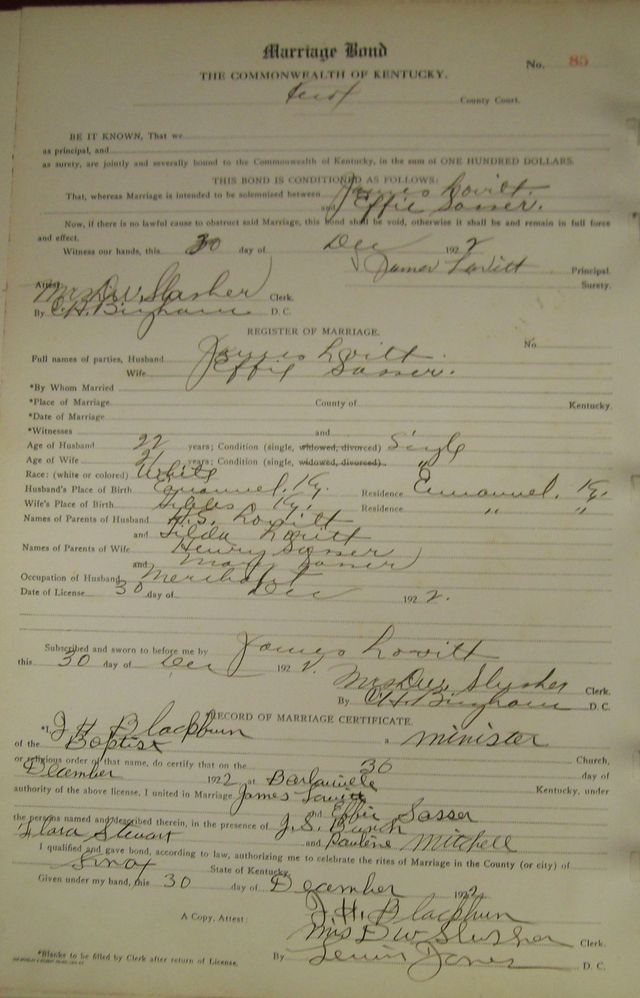 Marriage Bond
No. 85
THE COMMONWEALTH OF KENTUCKY.
Knox County Court.
BE IT KNOWN, That we
as principal, and
as surety, are jointly and severally bound to the Commonwealth of Kentucky, in the sum of ONE HUNDRED DOLLARS.
THIS BOND IS CONDITIONED AS FOLLOWS:
That, whereas Marriage is intended to be solemnized between James Lovitt
and Effie Sasser.
Now, if there is no lawful cause to obstruct said Marriage, this bond shall be void, otherwise it shall be and remain in full force
and effect.
Witness our hands, this 30 day of Dec 1922
James Lovitt Principal.
Attest Surety.
Mrs D.W. Slusher Clerk.
By C.H. Bingham D. C.
REGISTER OF MARRIAGE.
No
Full names of parties, Husband James Lovitt.
Wife Effie Sasser.
*By Whom Married
*Place of Marriage County of Kentucky.
*Date of Marriage
*Witnesses and
Age of Husband 22 years; Condition (single, widowed, divorced) Single
Age of Wife 21 years; Condition (single, widowed, divorced) "
Race: (white or colored) White
Husband's Place of Birth Emanuel, Ky. Residence Emanuel, Ky.
Wife's Place of Birth Ky. Residence " "
Names of Parents of Husband H.S. Lovitt
and Tilda Lovitt
Names of Parents of Wife Henry Sasser
and Mary Sasser
Occupation of Husband Merchant
Date of License 30 day of Dec 1922.
Subscribed and sworn to before me by James Lovitt
this 30 day of Dec 1922.
Mrs D.W. Slusher Clerk.
By C.H. Bingham D. C.
RECORD OF MARRIAGE CERTIFICATE.
*I, J H Blackburn a minister
of the Baptist Church,
or religious order of that name, do certify that on the 30 day of
December 1922 at Barbourville Kentucky, under
authority of the above license, I united in Marriage James Lovitt
and Effie Sasser
the persons named and described therein, in the presence of J.S. Burch
Flora Stewart and Pauline Mitchell
I qualified and gave bond, according to law, authorizing me to celebrate the rites of Marriage in the County (or city) of
Knox State of Kentucky.
Given under my hand, this 30 day of December 1922
J.H. Blackburn
A Copy, Attest: Mrs D W Slusher Clerk.
*Blanks to be filled by Clerk after return of License.
By Jones D. C.